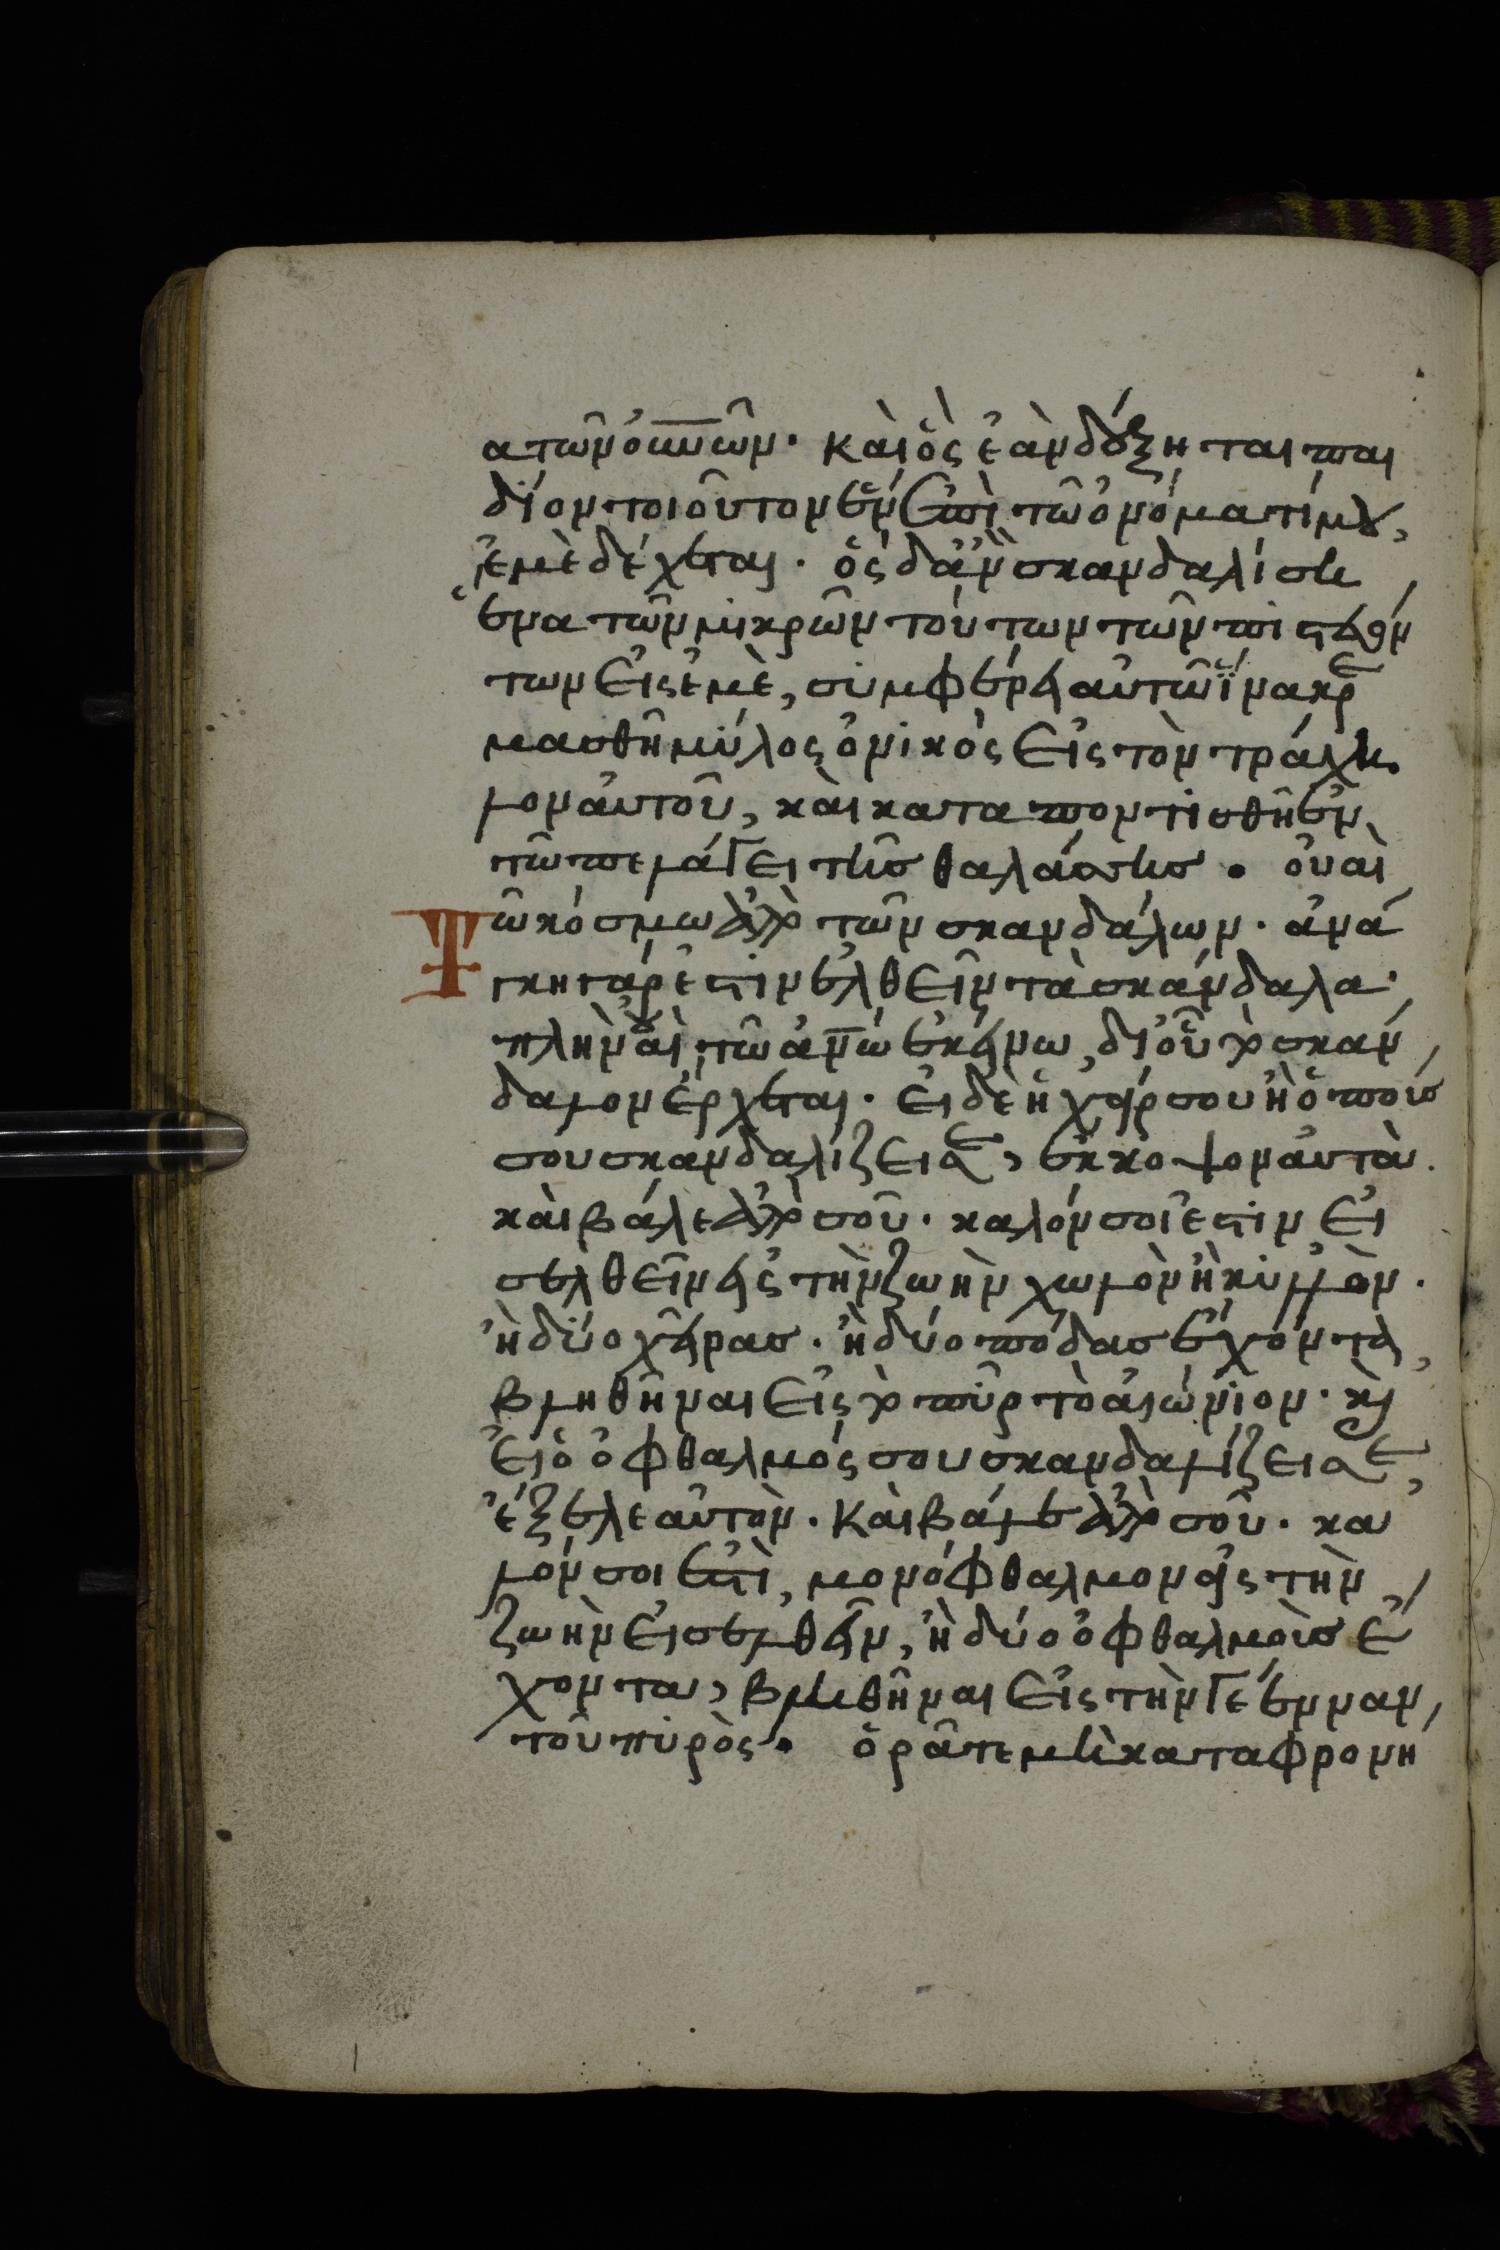 α τῶν οὐνῶν. καὶ ὃς ἐὰν δέξηται παι
δίον τοιοῦτον ἓν ἐπὶ τῶ ὀνόματί μου,
ἐμὲ δέχεται. ὃς δ' ἂν σκανδαλίση
ἕνα τῶν μικρῶν τούτων τῶν πιστευόν
των εἰς ἐμὲ, συμφέρει αὐτῶ ἵνα κρε
μασθῆ μύλος ὀνικὸς εἰς τὸν τράχη
λον αὐτοῦ, καὶ καταποντισθῆ ἐν
τῶ πελάγει τῆς θαλάσσης. οὐαὶ
Τῶ κόσμω ἀπὸ τῶν σκανδάλων. ἀνά
γκη γάρ ἐστιν ἐλθεῖν τὰ σκάνδαλα.
πλὴν οὐαὶ τῶ ἀνῶ ἐκείνω, δι' οὗ τὸ σκάν
δαλον ἔρχεται. εἰ δὲ ἡ χείρ σου ἢ ὁ πούς
σου σκανδαλίζει σε, ἔκκοψον αὐτὰ
καὶ βάλε ἀπὸ σοῦ. καλόν σοί ἐστιν εἰ
σελθεῖν εἰς τὴν ζωὴν χωλὸν ἢ κυλλὸν.
ἢ δύο χεῖρας. ἢ δύο πόδας ἔχοντα
βληθῆναι εἰς τὸ πῦρ τὸ αἰώνιον. καὶ
εἰ ὁ ὀφθαλμός σου σκανδαλίζει σε,
ἔξελε αὐτὸν. καὶ βάλε ἀπὸ σοῦ. κα
λόν σοι ἐστὶ, μονόφθαλμον εἰς τὴν
ζωὴν εἰσελθεῖν, ἢ δύο ὀφθαλμοὺς ἔ
χοντα, βληθῆναι εἰς τὴν γέενναν
τοῦ πυρὸς. ὁρᾶτε μὴ καταφρονή